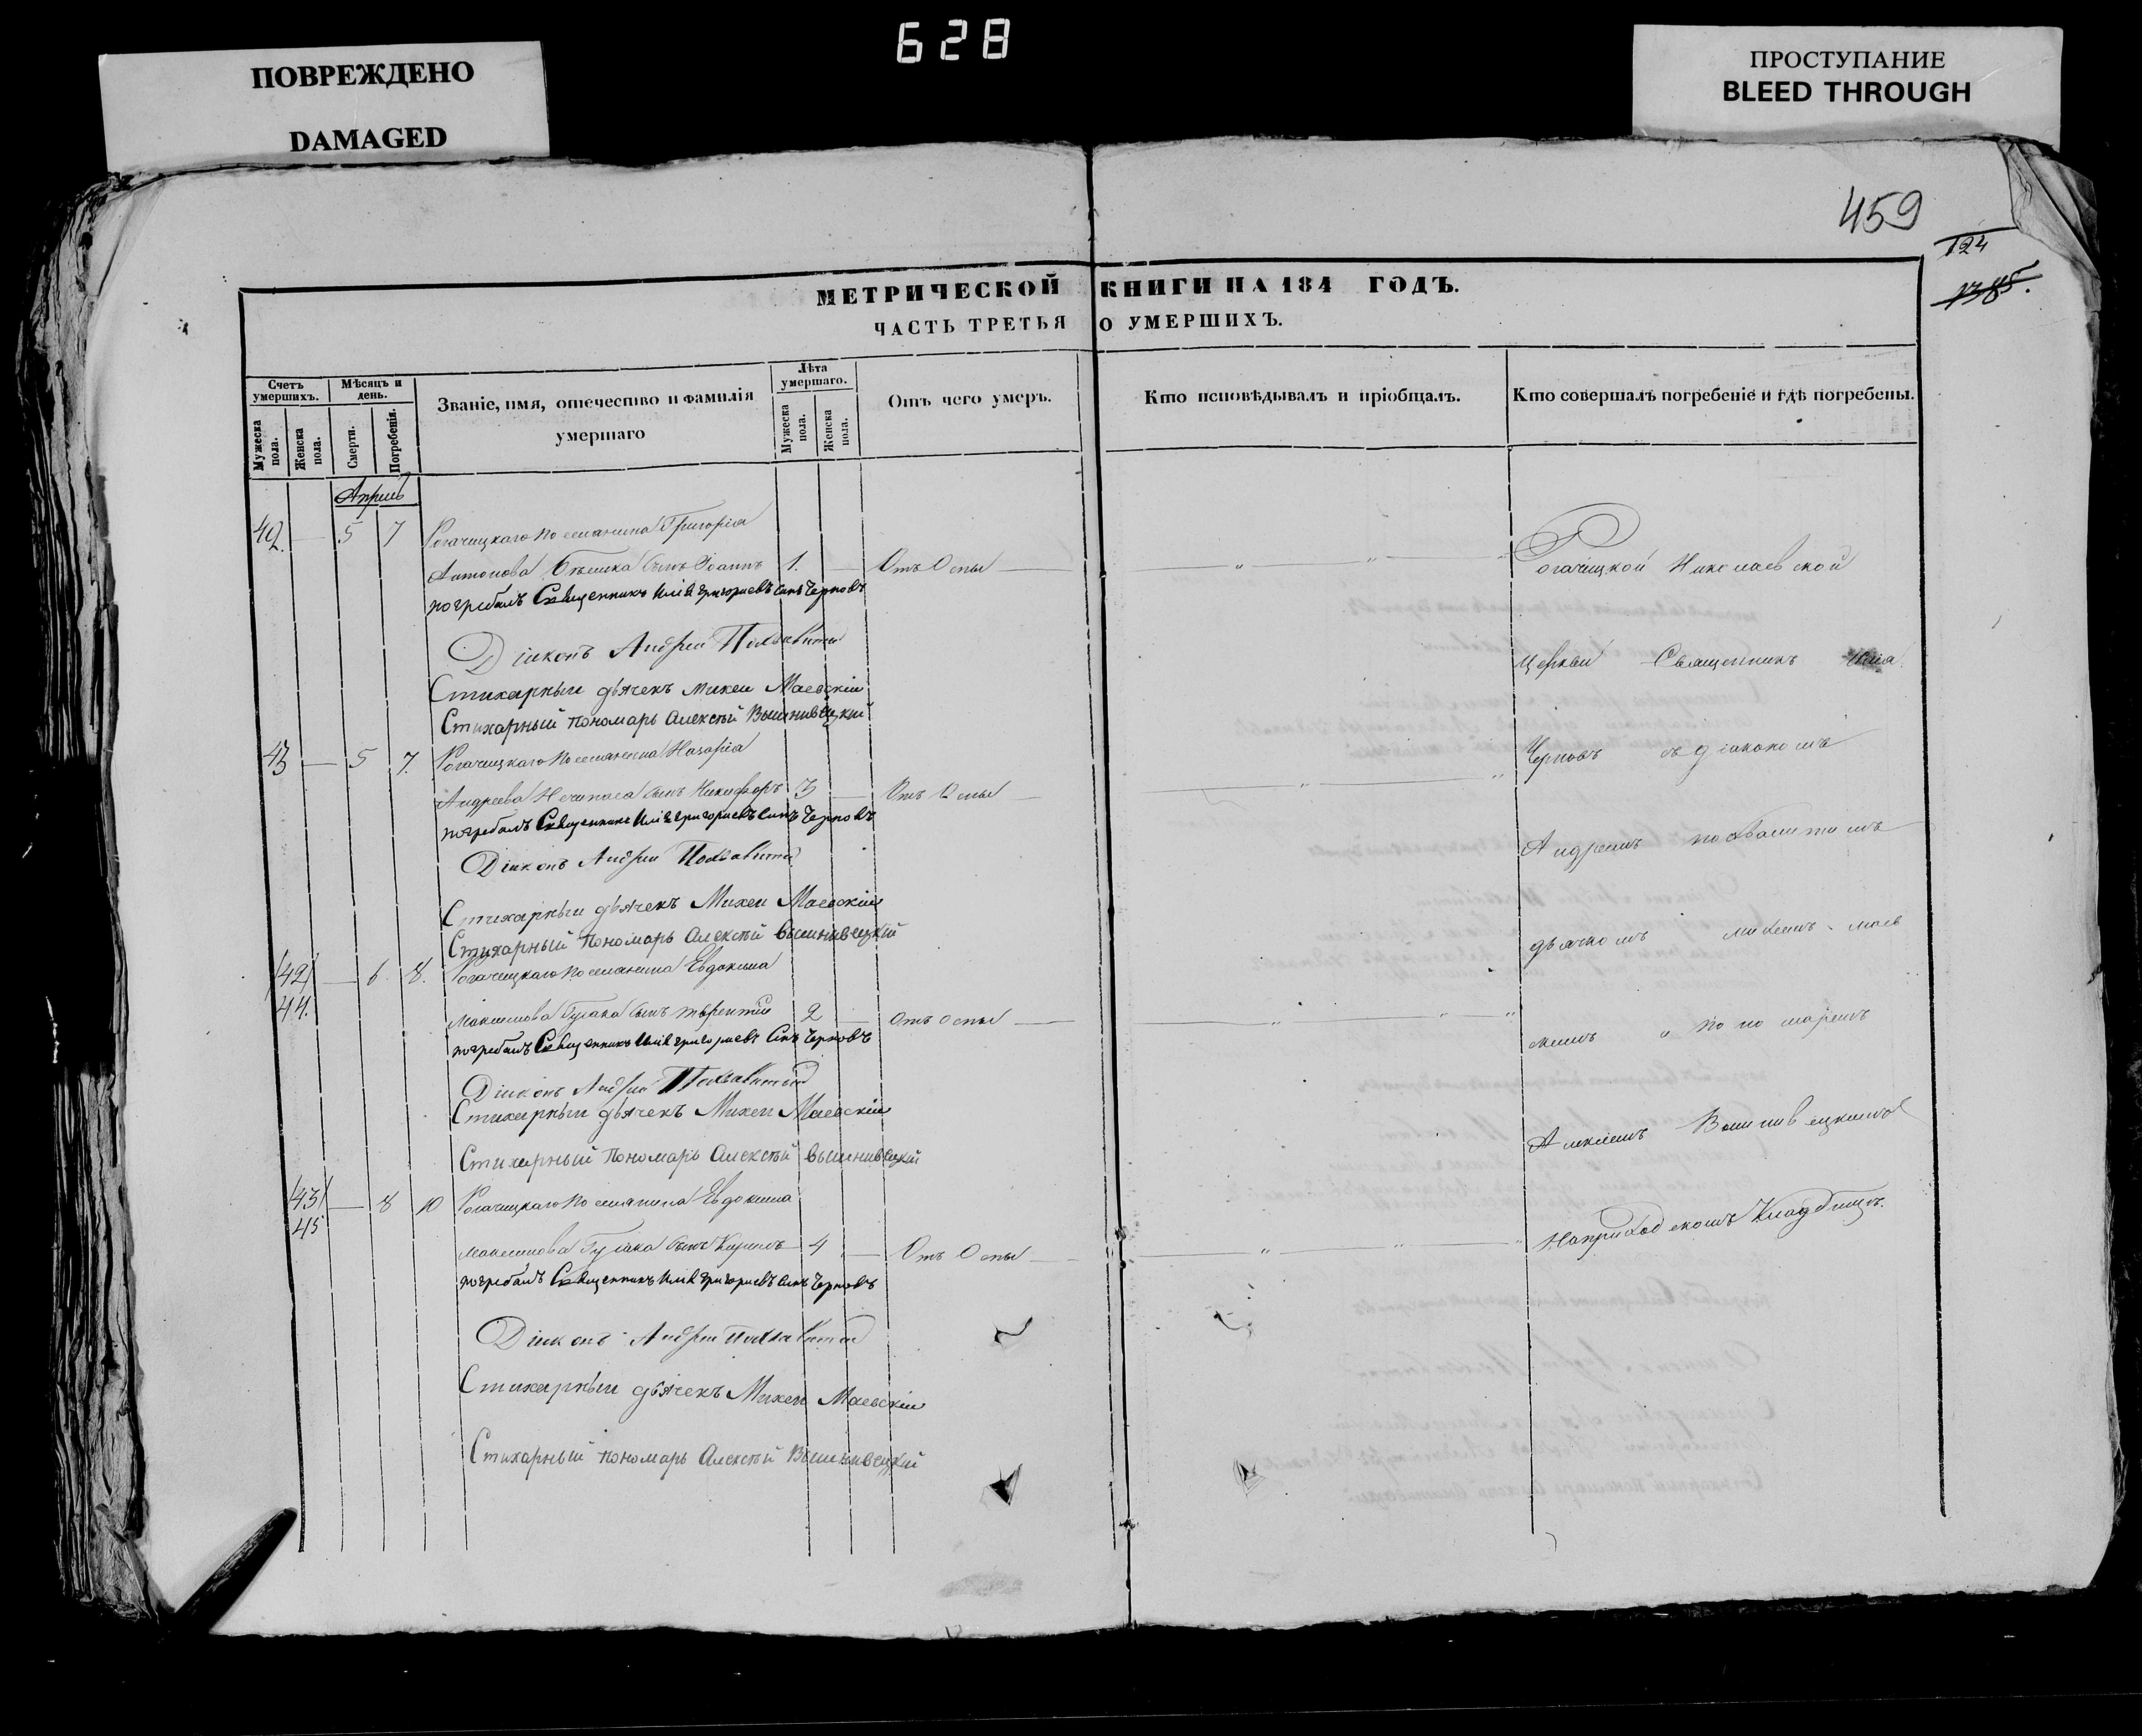 628
ПОВРЕЖДЕНО
DAMAGED
ПРОСТУПАНИЕ
BLEED THROUGH
459
124
МЕТРИЧЕСКОЙ КНИГИ НА 184 ГОДЪ.
ЧАСТЬ ТРЕТЬЯ О УМЕРШИХЪ.
Счетъ умершихъ.
Мужеска пола.
Женска пола.
Мѣсяцъ и день.
Смерти.
Погребенія.
Званіе, имя, отечество и фамилія умершаго
Лѣта умершаго.
Мужеска пола.
Женска пола.
Отъ чего умеръ.
Кто исповѣдывалъ и пріобщалъ.
Кто совершалъ погребеніе и гдѣ погребены.
Апрель
42. 5 7 Рогачицкаго поселянина Григорія
Антонова сынъ Іоаннъ 1. Отъ Оспы
погребалъ Священникъ Илія Григориевъ синъ Черновъ
Діяконъ Андрей Похвалитій
Стихарный дьячекъ Михей Маевскій
Стихарный пономарь Алексѣй Вышнивецкий
43 5 7. Рогачицкаго поселянина Назарія
Андреева сынъ Никифоръ 3 Отъ Оспы
погребалъ Священникъ Илія Григориевъ синъ Черновъ
Діяконъ Андрей Похвалитій
Стихарный дьячекъ Михей Маевскій
Стихарный пономарь Алексѣй Вышнивецкий
(42) 6 8. Рогачицкаго поселянина Евдокима
44. Максимова Гусака сынъ Терентій 2 Отъ Оспы
погребалъ Священникъ Илія Григориевъ Синъ Черновъ
Діяконъ Андрей Похвалитій
Стихарный дьячекъ Михей Маевскій
Стихарный пономарь Алексѣй Вышнивецкий
(43) 8 10 Рогачицкаго поселянина Евдокима
45 Максимова Гусака сынъ Кирилъ 4 Отъ Оспы
погребалъ Священникъ Илія Григориевъ синъ Черновъ
Діяконъ Андрей Похвалитій
Стихарный дьячекъ Михей Маевскій
Стихарный пономарь Алексѣй Вышнивецкий
Рогачицкой Николаевской
Церкви Священникъ Илія
Черновъ съ діякономъ
Андреемъ Похвалитимъ
дьячкомъ Михеемъ Маев
скимъ и пономаремъ
Алексѣемъ Вышнивецкимъ
На приходскомъ Кладбищѣ.